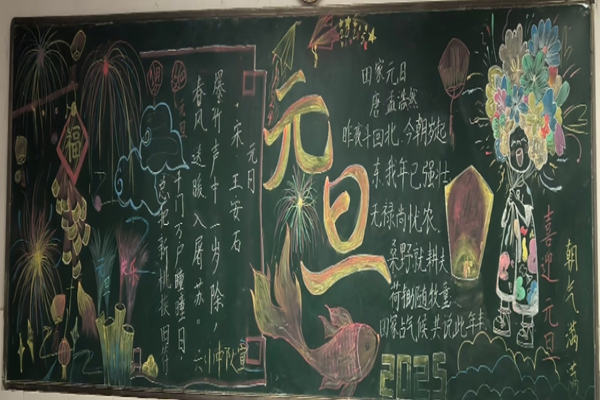 福
元日
·宋·王安石
爆竹声中一岁除,
春风送暖入屠苏。
千门万户曈曈日
总把新桃换旧符
元旦
田家元日
唐 孟浩然
昨夜斗回北,今朝岁起
东,我年已强壮
无禄尚忧农.
桑野就耕夫
荷锄随牧童.
田家占气候 共说此年丰
2025
喜迎元旦
朝气满满